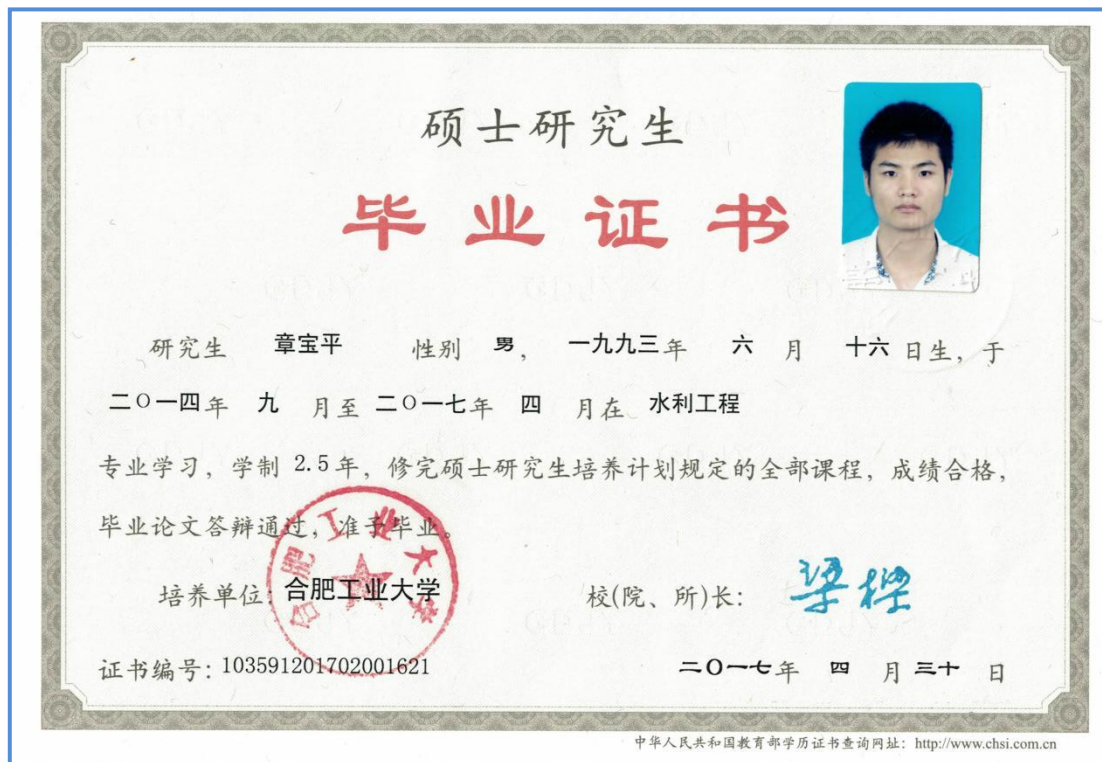 硕士研究生
毕业证书
研究生 章宝平 性别 男, 一九九三年 六 月 十六 日生, 于
二○一四年 九 月至 二○一七年 四 月在 水利工程
专业学习, 学制 2.5年, 修完硕士研究生培养计划规定的全部课程, 成绩合格,
毕业论文答辩通过, 准予毕业。
合肥工业大学
培养单位: 合肥工业大学 校(院、所)长: 梁樑
证书编号: 103591201702001621 二○一七年 四 月 三十 日
中华人民共和国教育部学历证书查询网址: http://www.chsi.com.cn